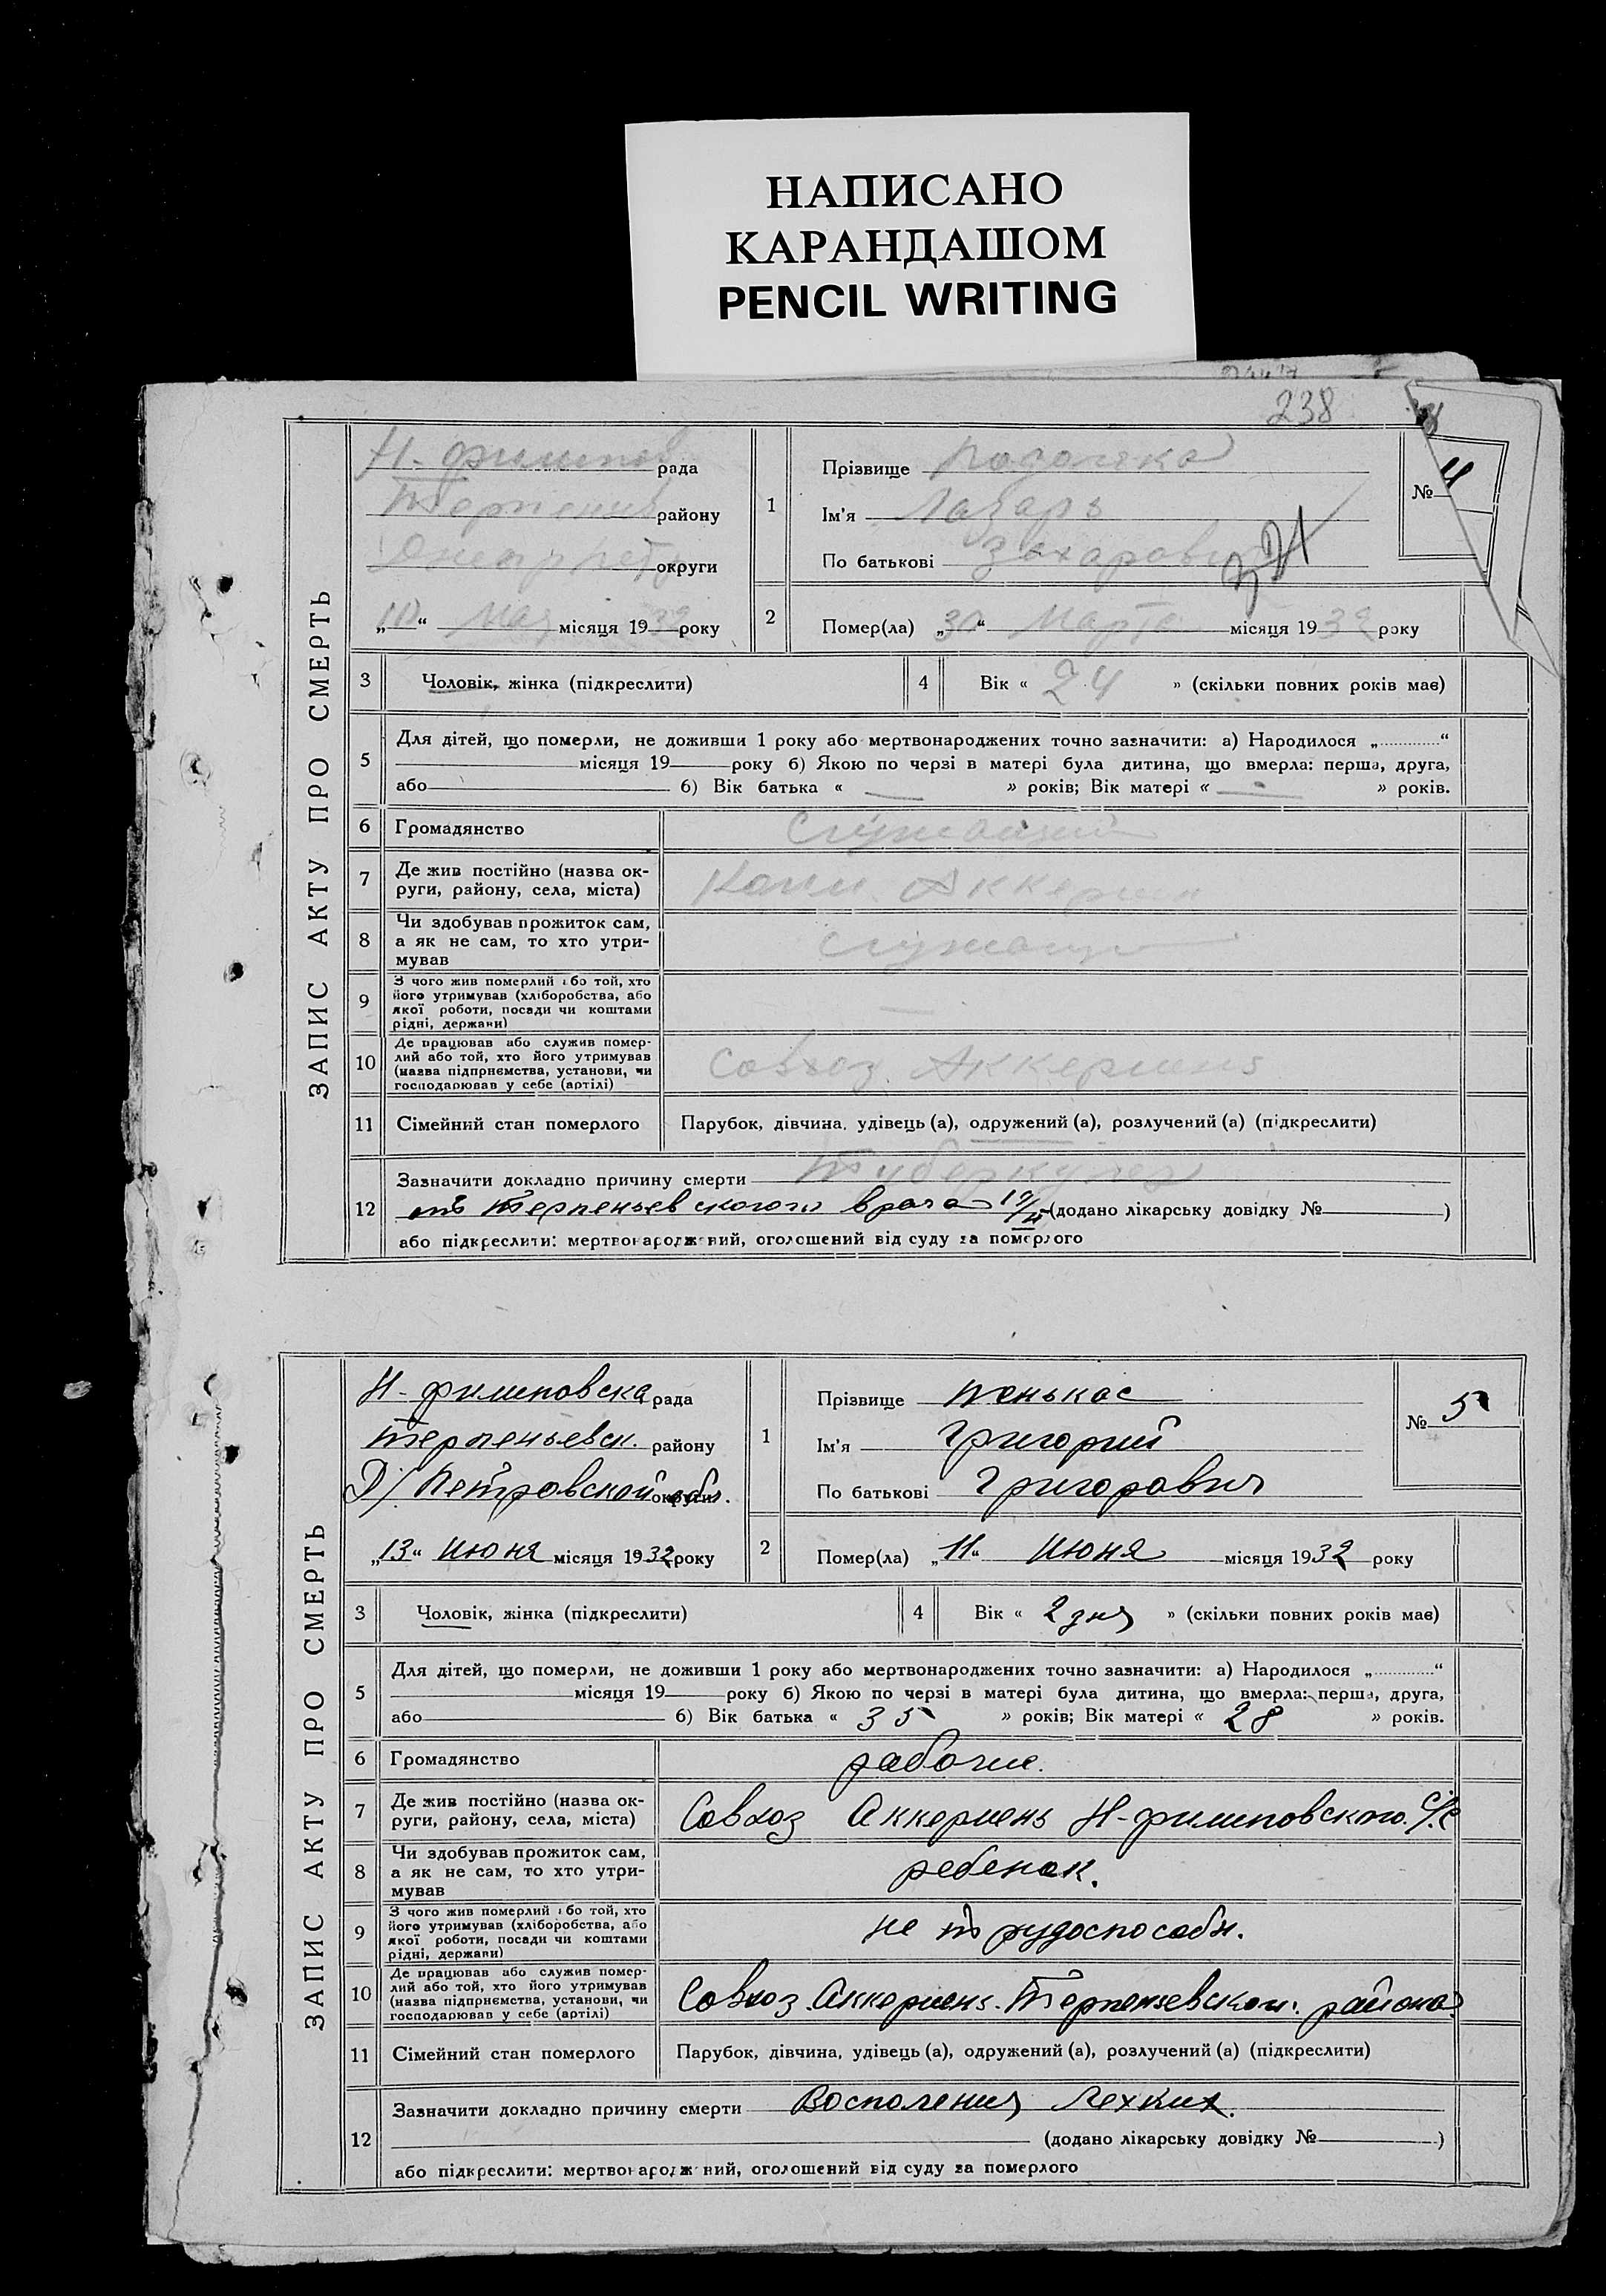 НАПИСАНО
КАРАНДАШОМ
PENCIL WRITING
238
ЗАПИС АКТУ ПРО СМЕРТЬ
Н-филипов рада
Терпенив району
округи
„10“ Мая місяця 1932 року
1
Прізвище
Ім'я Лазарь
По батькові Захарович
№ 4
2
Помер(ла) „30“ Марта місяця 1932 року
3
Чоловік, жінка (підкреслити)
4
Вік « 24 » (скільки повних років має)
5
Для дітей, що померли, не доживши 1 року або мертвонароджених точно зазначити: а) Народилося „ “
місяця 19 року б) Якою по черзі в матері була дитина, що вмерла: перша, друга,
або б) Вік батька « — » років; Вік матері « — » років.
6
Громадянство
Служащий
7
Де жив постійно (назва ок-
руги, району, села, міста)
Аккермен
8
Чи здобував прожиток сам,
а як не сам, то хто утри-
мував
служащи
9
З чого жив померлий або той, хто
його утримував (хліборобства, або
якої роботи, посади чи коштами
рідні, держави)
—
10
Де працював або служив помер-
лий або той, хто його утримував
(назва підприємства, установи, чи
господарював у себе (артілі)
Совхоз Аккермень
11
Сімейний стан померлого
Парубок, дівчина, удівець (а), одружений (а), розлучений (а) (підкреслити)
12
Зазначити докладно причину смерти Туберкулез
от Терпеньевского врача (додано лікарську довідку № )
або підкреслити: мертвонароджений, оголошений від суду за померлого
ЗАПИС АКТУ ПРО СМЕРТЬ
Н-филиповска рада
Терпеньевск. району
Д/Петровской обл. округи
„13“ Июня місяця 1932 року
1
Прізвище Пенькас
Ім'я Григорий
По батькові Григорович
№ 5
2
Помер(ла) „11“ Июня місяця 1932 року
3
Чоловік, жінка (підкреслити)
4
Вік « 2 дня » (скільки повних років має)
5
Для дітей, що померли, не доживши 1 року або мертвонароджених точно зазначити: а) Народилося „ “
місяця 19 року б) Якою по черзі в матері була дитина, що вмерла: перша, друга,
або б) Вік батька « 35 » років; Вік матері « 28 » років.
6
Громадянство
рабочие.
7
Де жив постійно (назва ок-
руги, району, села, міста)
Совхоз Аккермень Н-филиповского С/С
8
Чи здобував прожиток сам,
а як не сам, то хто утри-
мував
ребенок.
9
З чого жив померлий або той, хто
його утримував (хліборобства, або
якої роботи, посади чи коштами
рідні, держави)
не трудоспособн.
10
Де працював або служив помер-
лий або той, хто його утримував
(назва підприємства, установи, чи
господарював у себе (артілі)
Совхоз Аккермень. Терпеньевском. района
11
Сімейний стан померлого
Парубок, дівчина, удівець (а), одружений (а), розлучений (а) (підкреслити)
12
Зазначити докладно причину смерти Восполения Лехких.
(додано лікарську довідку № )
або підкреслити: мертвонароджений, оголошений від суду за померлого